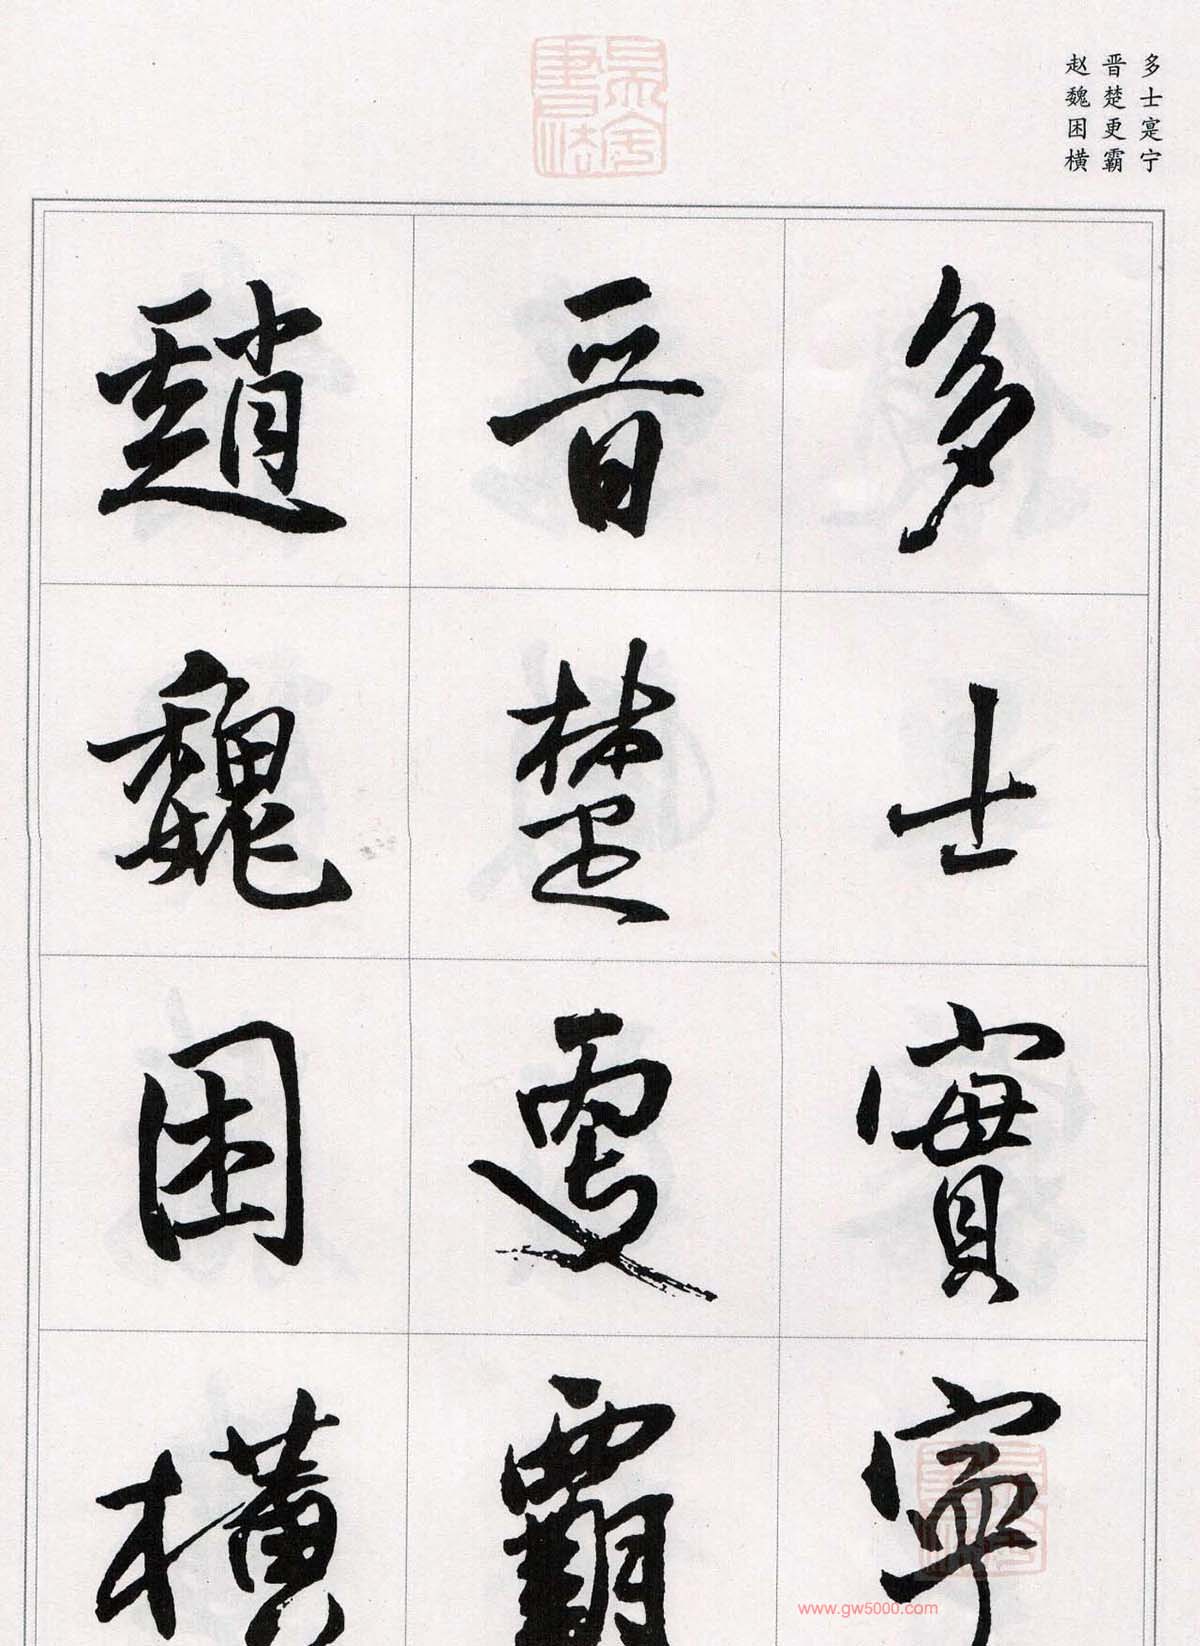 多士寔宁
晋楚更霸
赵魏困横
多士實寧
晋楚更霸
趙魏困横
www.gw5000.com